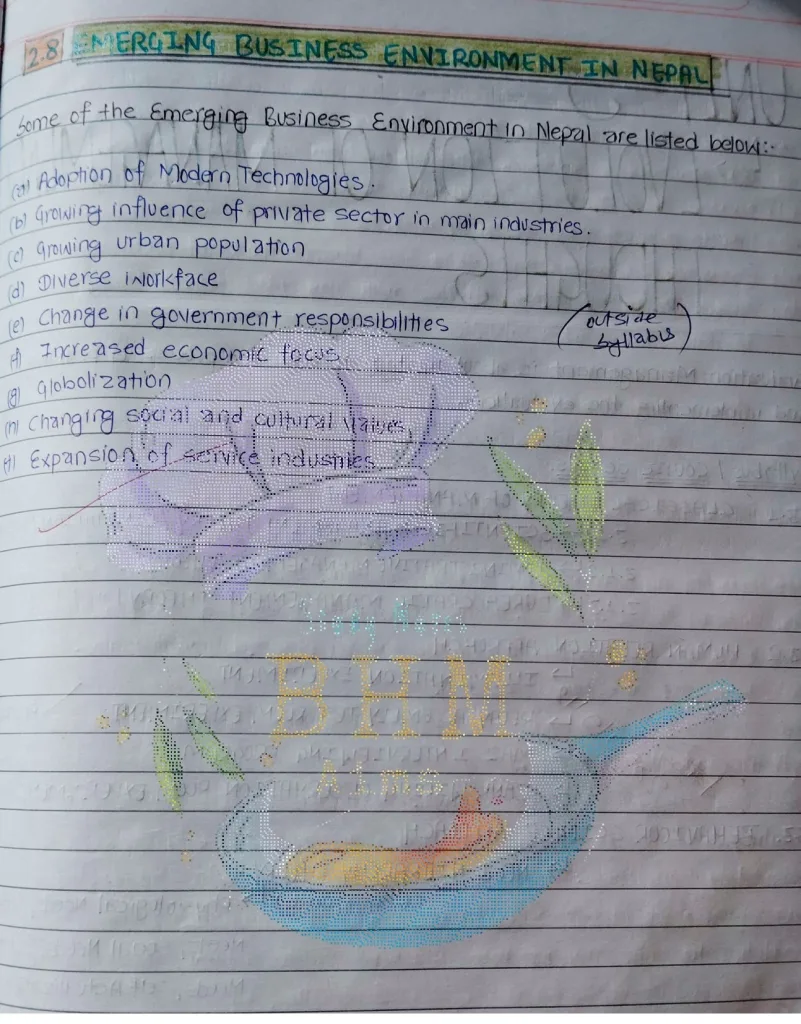 2.8 EMERGING BUSINESS ENVIRONMENT IN NEPAL
Some of the Emerging Business Environment in Nepal are listed below:-
(a) Adoption of Modern Technologies.
(b) Growing influence of private sector in main industries.
(c) Growing urban population
(d) Diverse workface
(e) Change in government responsibilities
(outside
syllabus)
(f) Increased economic focus
(g) Globolization
(h) Changing social and cultural values
Expansion of service industries
Study Notes
BHM
Aims